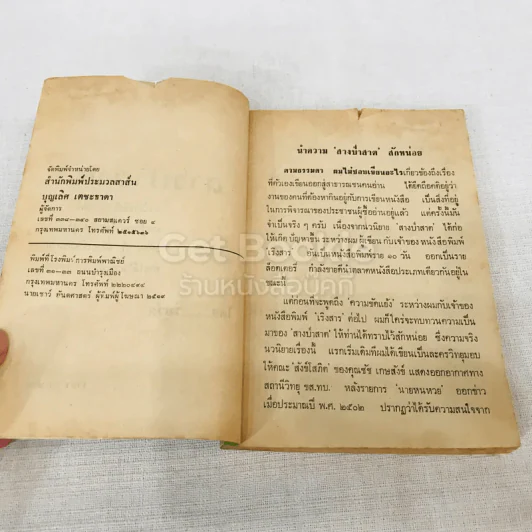 จัดพิมพ์จำหน่ายโดย
สำนักพิมพ์ประมวลสาส์น
บุญเลิศ เตชะธาดา
ผู้จัดการ
เลขที่ ๓๓๘-๓๔๐ สยามสแควร์ ซอย ๔
กรุงเทพมหานคร โทรศัพท์
พิมพ์ที่โรงพิมพ์ การพิมพ์พาณิชย์
เลขที่ ๓๑-๓๓ ถนนบำรุงเมือง
กรุงเทพมหานคร โทรศัพท์
นายเชาว์ คันธศาสตร์ ผู้พิมพ์ผู้โฆษณา ๒๕๑๙
นำความ 'สางป่าสาด' สักหน่อย
ตามธรรมดา ผมไม่ชอบเขียนอะไรเกี่ยวข้องถึงเรื่อง
ที่ตัวเองเขียนออกสู่สาธารณชนคนอ่าน ได้ยึดถือคติอยู่ว่า
งานของคนที่ต้องหากินอยู่กับการเขียนหนังสือ เป็นสิ่งที่อยู่
ในการพิจารณาของประชาชนผู้ซื้ออ่านอยู่แล้ว แต่ครั้งนี้มัน
จำเป็นจริง ๆ ครับ เนื่องจากว่านวนิยาย 'สางป่าสาด' ได้ก่อ
ให้เกิดปัญหาขึ้น ระหว่างผม ผู้เขียน กับเจ้าของ หนังสือพิมพ์
'เริงสาร' อันเป็นหนังสือพิมพ์ราย ๑๐ วัน ออกเป็นราย
ล็อตเตอรี่ กำลังขายดีในตลาดหนังสือประเภทเดียวกันอยู่ใน
ขณะนี้
แต่ก่อนที่จะพูดถึง 'ความขัดแย้ง' ระหว่างผมกับเจ้าของ
หนังสือพิมพ์ 'เริงสาร' ต่อไป ผมก็ใคร่จะทบทวนความเป็น
มาของ 'สางป่าสาด' ให้ท่านได้ทราบไว้สักหน่อย ซึ่งความจริง
นวนิยายเรื่องนี้ แรกเริ่มเดิมทีผมได้เขียนเป็นละครวิทยุมอบ
ให้คณะ 'สังข์โสภิต' ของคุณชัช เกษสังข์ แสดงออกอากาศทาง
สถานีวิทยุ ขส.ทบ. หลังรายการ 'นายหนหวย' ออกข่าว
เมื่อประมาณปี พ.ศ. ๒๕๐๒ ปรากฏว่าได้รับความสนใจจาก
Get Bookie
ร้านหนังสือนุกิ